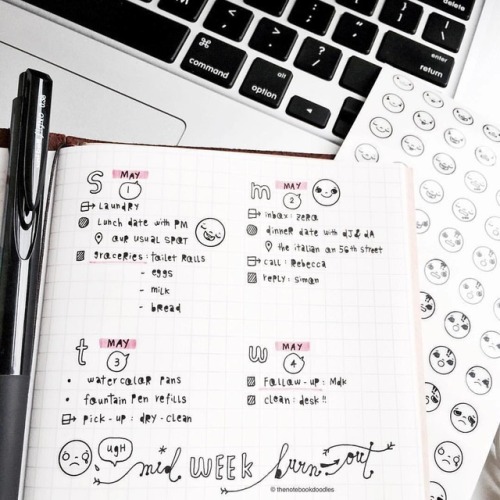 delete
enter
return
command
alt
option
S
MAY
1
Laundry
Lunch date with PM
our usual spot
groceries: toilet rolls
- eggs
- milk
- bread
m
MAY
2
inbox: zero
dinner date with dJ & dA
the italian on 56th street
call: Rebecca
reply: simon
t
MAY
3
water color pans
fountain pen refills
pick-up: dry-clean
w
MAY
4
Follow-up: Mdk
clean: desk!!
ugh
mid WEEK burn-out
© thenotebookdoodles